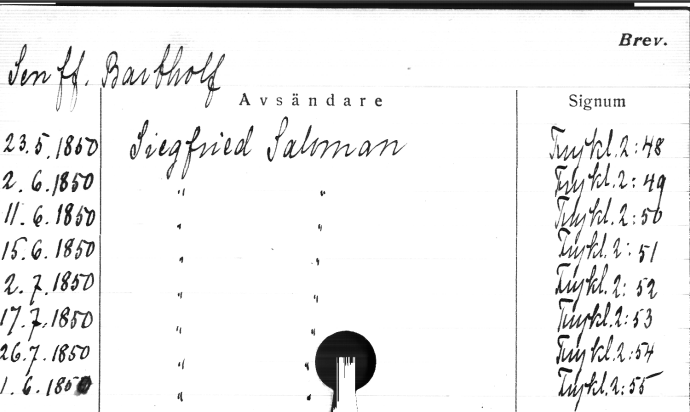 Brev.
Senff. Barthold
Avsändare Signum
23.5.1850 Siegfried Saloman Tnykl.2:48
2.6.1850 " " Tnykl.2:49
11.6.1850 " " Tnykl.2:50
15.6.1850 " " Tnykl.2:51
2.7.1850 " " Tnykl.2:52
17.7.1850 " " Tnykl.2:53
26.7.1850 " " Tnykl.2:54
1.6.1850 " " Tnykl.2:55